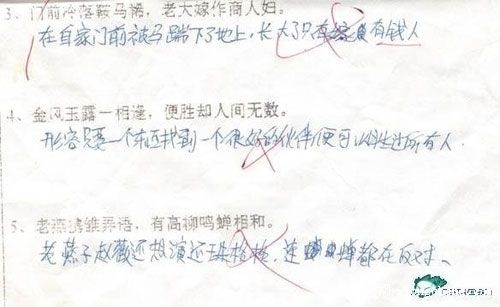 3、门前冷落鞍马稀，老大嫁作商人妇。
在自家门前被马踹下了地上，长大了只有有钱人
4、金风玉露一相逢，便胜却人间无数。
形容只要一个东西找到一个很好的伙伴便可以胜过所有人.
5、老燕携雏弄语，有高柳鸣蝉相和。
老燕子赵薇还想演还珠格格，连鸣蝉都在反对、